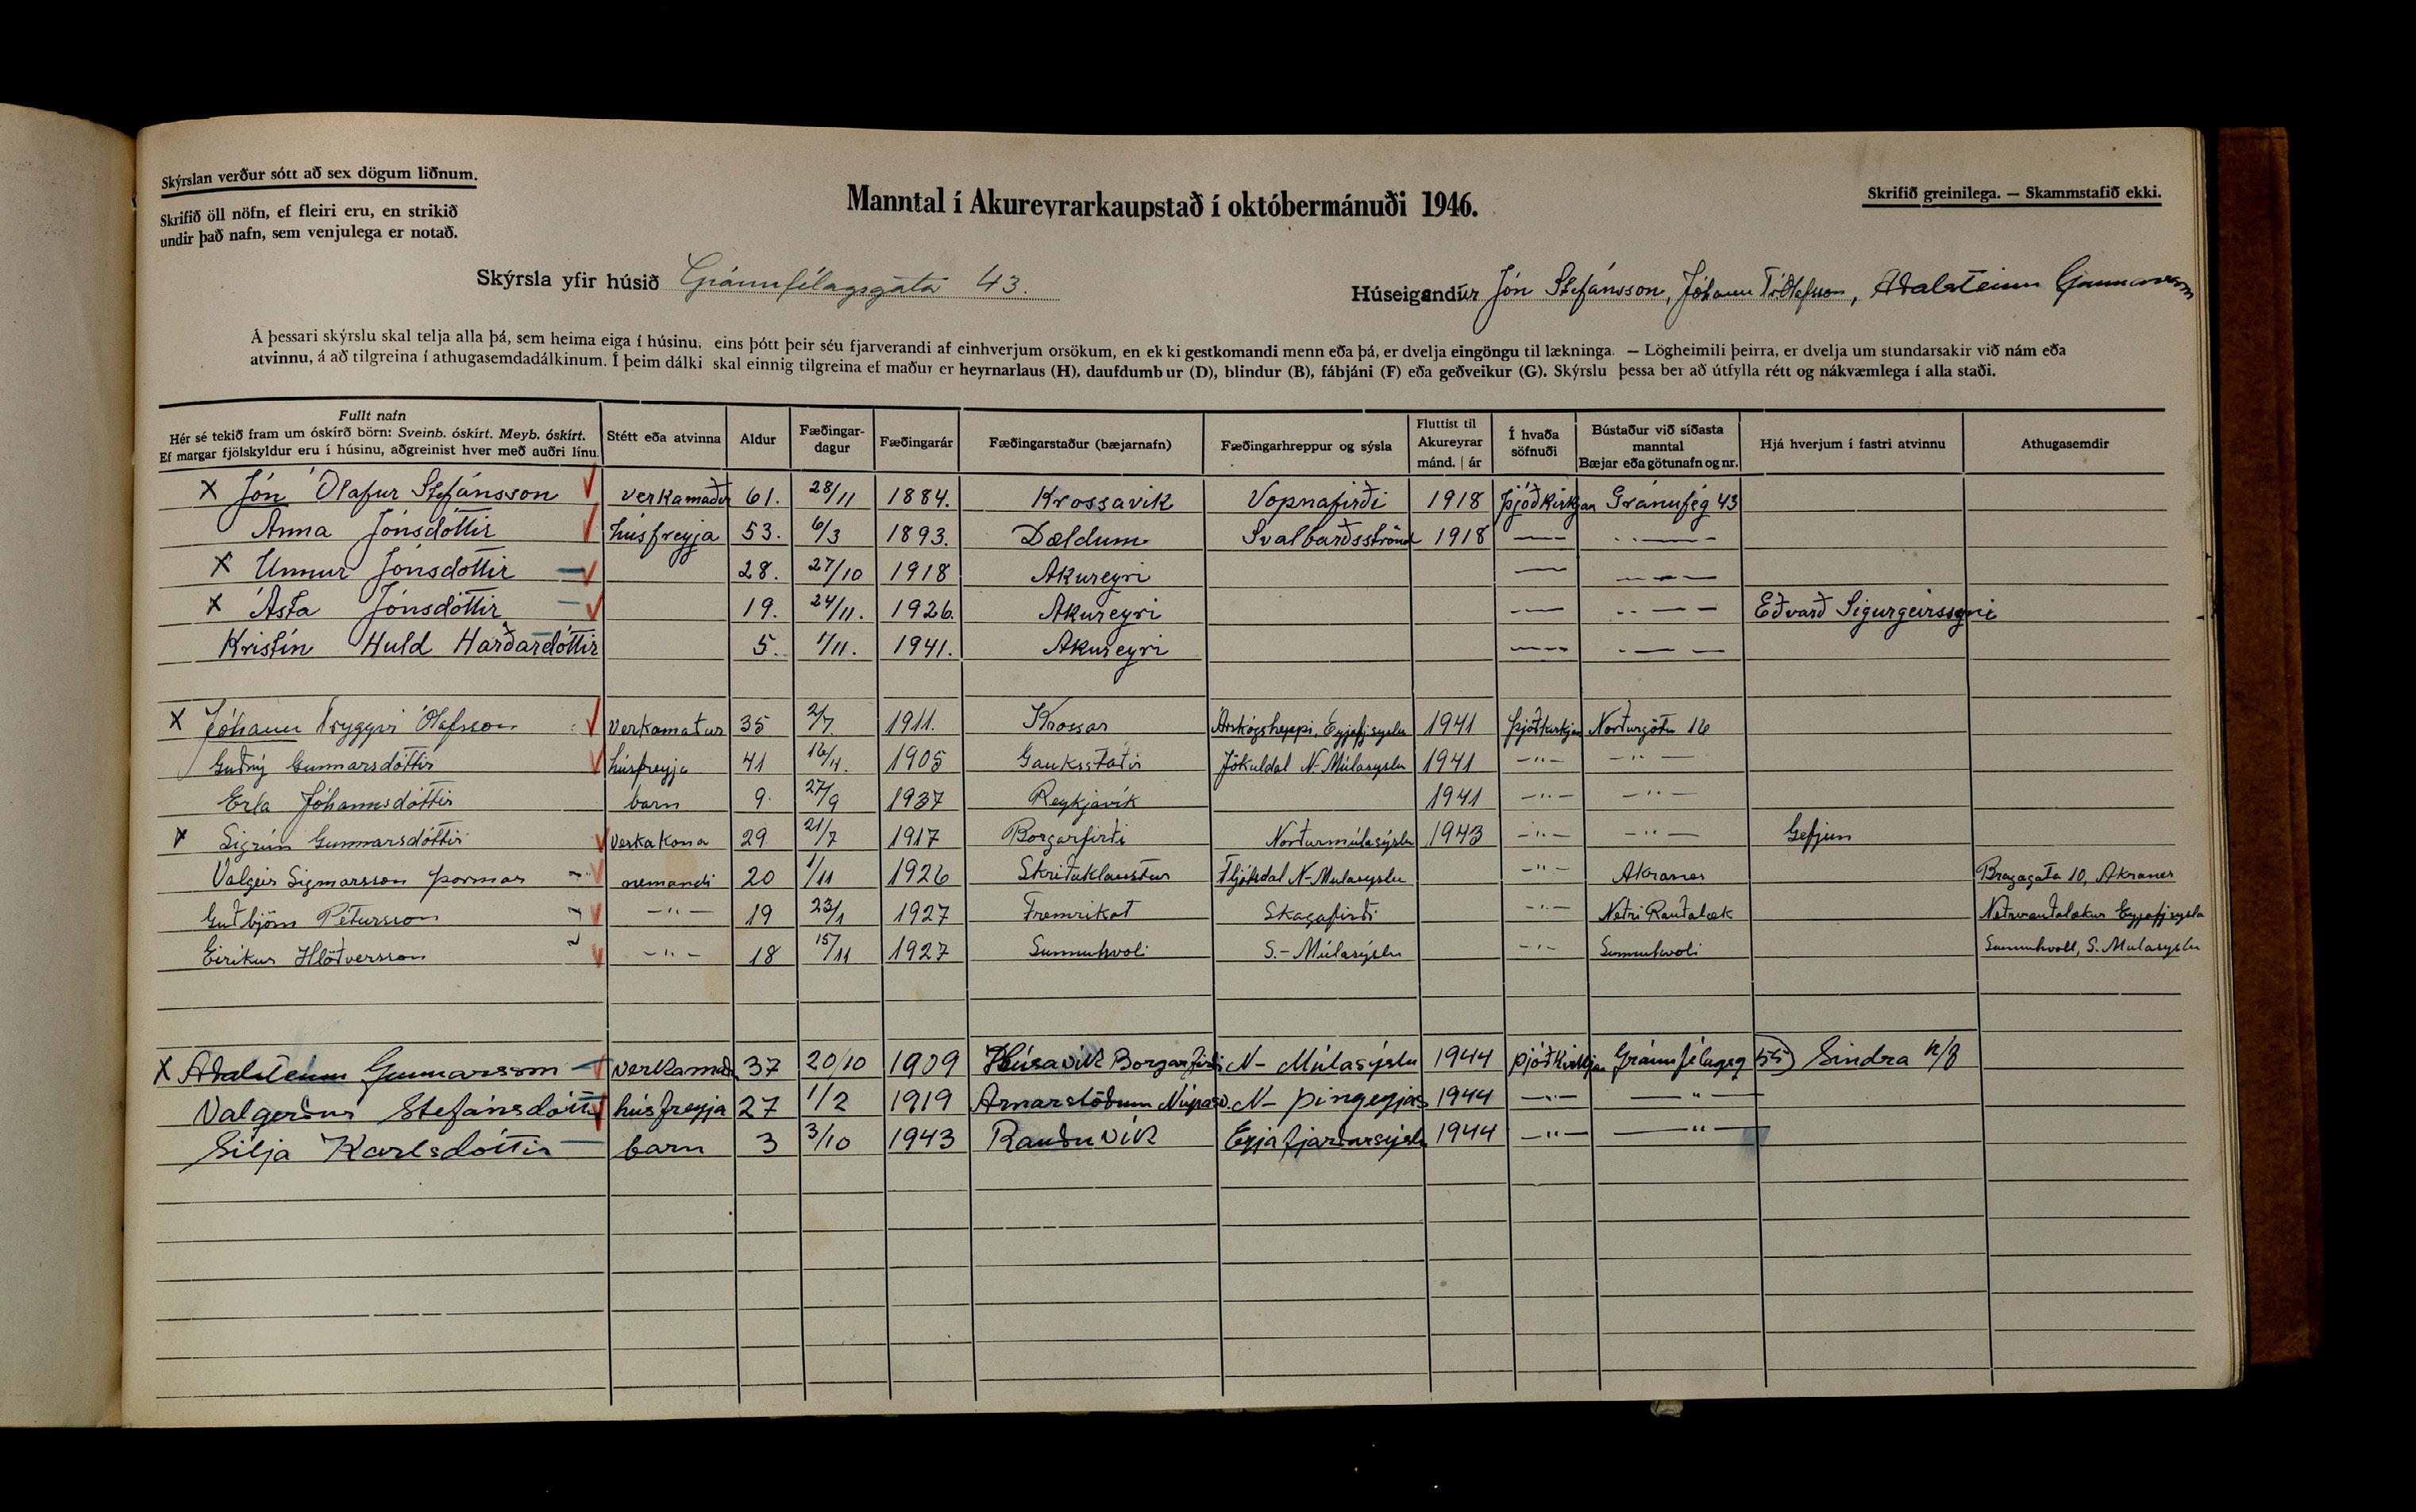 Skýrslan verður sótt að sex dögum liðnum.
Skrifið öll nöfn, ef fleiri eru, en strikið
undir það nafn, sem venjulega er notað.
Manntal í Akureyrarkaupstað í októbermánuði 1946.
Skrifið greinilega. — Skammstafið ekki.
Skýrsla yfir húsið Gránufélagsgata 43.
Húseigandur Jón Stefánsson, Jóhann Tr. Ólafsson, Aðalsteinn Gunnarsson
Á þessari skýrslu skal telja alla þá, sem heima eiga í húsinu, eins þótt þeir séu fjarverandi af einhverjum orsökum, en ekki gestkomandi menn eða þá, er dvelja eingöngu til lækninga. — Lögheimili þeirra, er dvelja um stundarsakir við nám eða
atvinnu, á að tilgreina í athugasemdadálkinum. Í þeim dálki skal einnig tilgreina ef maður er heyrnarlaus (H), daufdumbur (D), blindur (B), fábjáni (F) eða geðveikur (G). Skýrslu þessa ber að útfylla rétt og nákvæmlega í alla staði.
Fullt nafn Hér sé tekið fram um óskírð börn: Sveinb. óskírt. Meyb. óskírt. Ef margar fjölskyldur eru í húsinu, aðgreinist hver með auðri línu. Stétt eða atvinna Aldur Fæðingar-dagur Fæðingarár Fæðingarstaður (bæjarnafn) Fæðingarhreppur og sýsla Fluttist til Akureyrar mánd. | ár Í hvaða söfnuði Bústaður við síðasta manntal Bæjar eða götunafn og nr. Hjá hverjum í fastri atvinnu Athugasemdir
X Jón Ólafur Stefánsson verkamaður 61. 28/11 1884. Krossavik Vopnafirði 1918 Þjóðkirkjan Gránufég 43
Anna Jónsdóttir húsfreyja 53. 6/3 1893. Dældum Svalbarðsströnd 1918 — — —
X Unnur Jónsdóttir 28. 27/10 1918 Akureyri — — —
X Ásta Jónsdóttir 19. 24/11. 1926. Akureyri — — — Eðvarð Sigurgeirssyni
Kristín Huld Harðardóttir 5. 1/11. 1941. Akureyri — — —
X Jóhann Tryggvi Ólafsson Verkamaður 35 2/7. 1911. Krossar Árskógshreppi, Eyjafj.sýslu 1941 Þjóðkirkjan Norðurgötu 16
Guðný Gunnarsdóttir húsfreyja 41 16/4. 1905 Gauksstaðir Jökuldal N-Múlasýslu 1941 -"- -"-
Erla Jóhannsdóttir barn 9. 27/9 1937 Reykjavík 1941 -"- -"-
X Sigrún Gunnarsdóttir Verkakona 29 21/7 1917 Borgarfirði Norðurmúlasýslu 1943 -"- -"- Gefjun
Valgeir Sigmarsson Þormar nemandi 20 1/11 1926 Skriðuklaustur Fljótsdal N-Múlasýslu -"- Akranes Bragagata 10, Akranes
Guðbjörn Pétursson -"- 19 23/1 1927 Fremrikot Skagafirði -"- Neðri Rauðalæk Neðrirauðalækur Eyjafj.sýsla
Eiríkur Hlöðversson -"- 18 15/11 1927 Sunnuhvoli S.-Múlasýslu -"- Sunnuhvoli Sunnuhvoll, S. Múlasýslu
X Aðalsteinn Gunnarsson verkamað. 37 20/10 1909 Húsavík Borgarfirði N- Múlasýslu 1944 Þjóðkirkjan Gránufélagsg 55) Sindra h/f
Valgerður Stefánsdóttir húsfreyja 27 1/2 1919 Arnarstöðum Núpasv. N- Þingeyjas 1944 -"- -"-
Silja Karlsdóttir barn 3 3/10 1943 Rauðuvík Eyjafjarðarsýslu 1944 -"- -"-